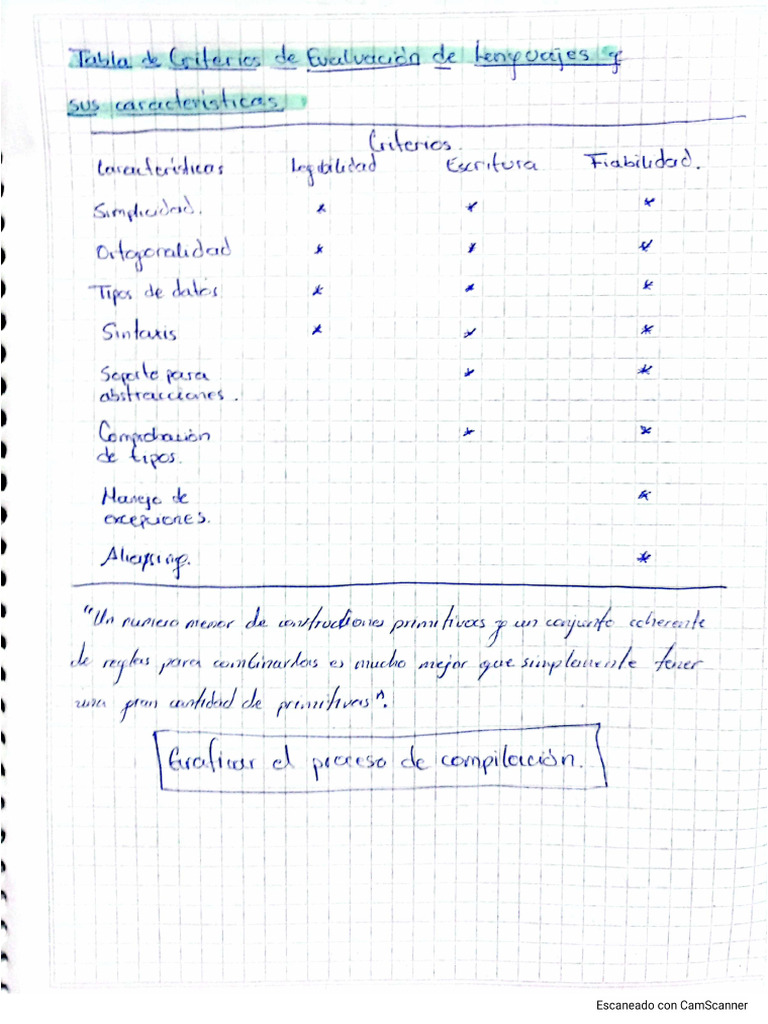 Tabla de Criterios de Evaluación de Lenguajes y
sus características.
Criterios.
Características Legibilidad Escritura Fiabilidad.
Simplicidad. * * *
Ortogonalidad * * *
Tipos de datos * * *
Sintaxis * * *
Soporte para * *
abstracciones.
Comprobación * *
de tipos.
Manejo de *
excepciones.
Aliasing. *
"Un numero menor de construcciones primitivas y un conjunto coherente
de reglas para combinarlas es mucho mejor que simplemente tener
una gran cantidad de primitivas".
Graficar el proceso de compilación.
Escaneado con CamScanner